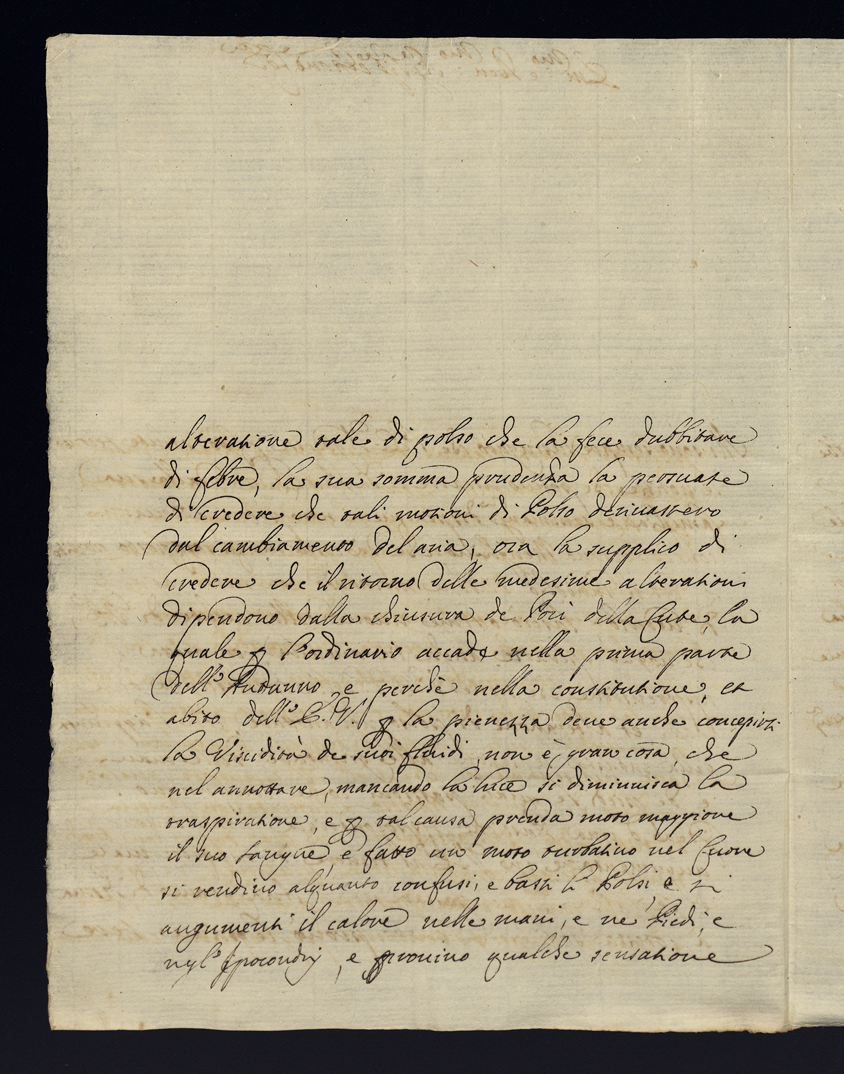 alteratione tale di polso che la fece dubbitare
di febre, la sua somma prudenza la persuase
di credere che tali motioni di Polso derivassero
dal cambiamento del aria, ora la supplico di
credere che il ritorno delle medesime alterationi
dipendono dalla chiusura de Pori della Cute, la
quale p l'ordinario accade nella prima parte
dell'Autunno e perche nella constitutione, et
abito dell' E. V. p la pienezza deve anche concepirsi
la Viscidità de suoi fluidi, non è gran cosa, che
nel annottare, mancando la luce si diminuisca la
traspiratione, e p tal causa prenda moto maggiore
il suo sangue, e fatto un moto turbativo nel Cuore
si rendino alquanto confusi, e bassi li Polsi e si
augumenti il calore nelle mani, e ne' Piedi, e
negl' Ipocondrij, e provino qualche sensatione